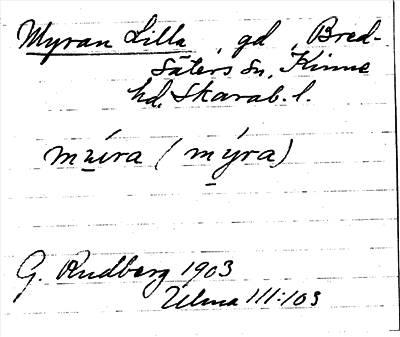 Myran Lilla, gd, Bred-
säters sn, Kinne
hd, Skarab. l.
mu̲íra (mý̲ra)
G. Rudberg 1903
Ulma 111:103